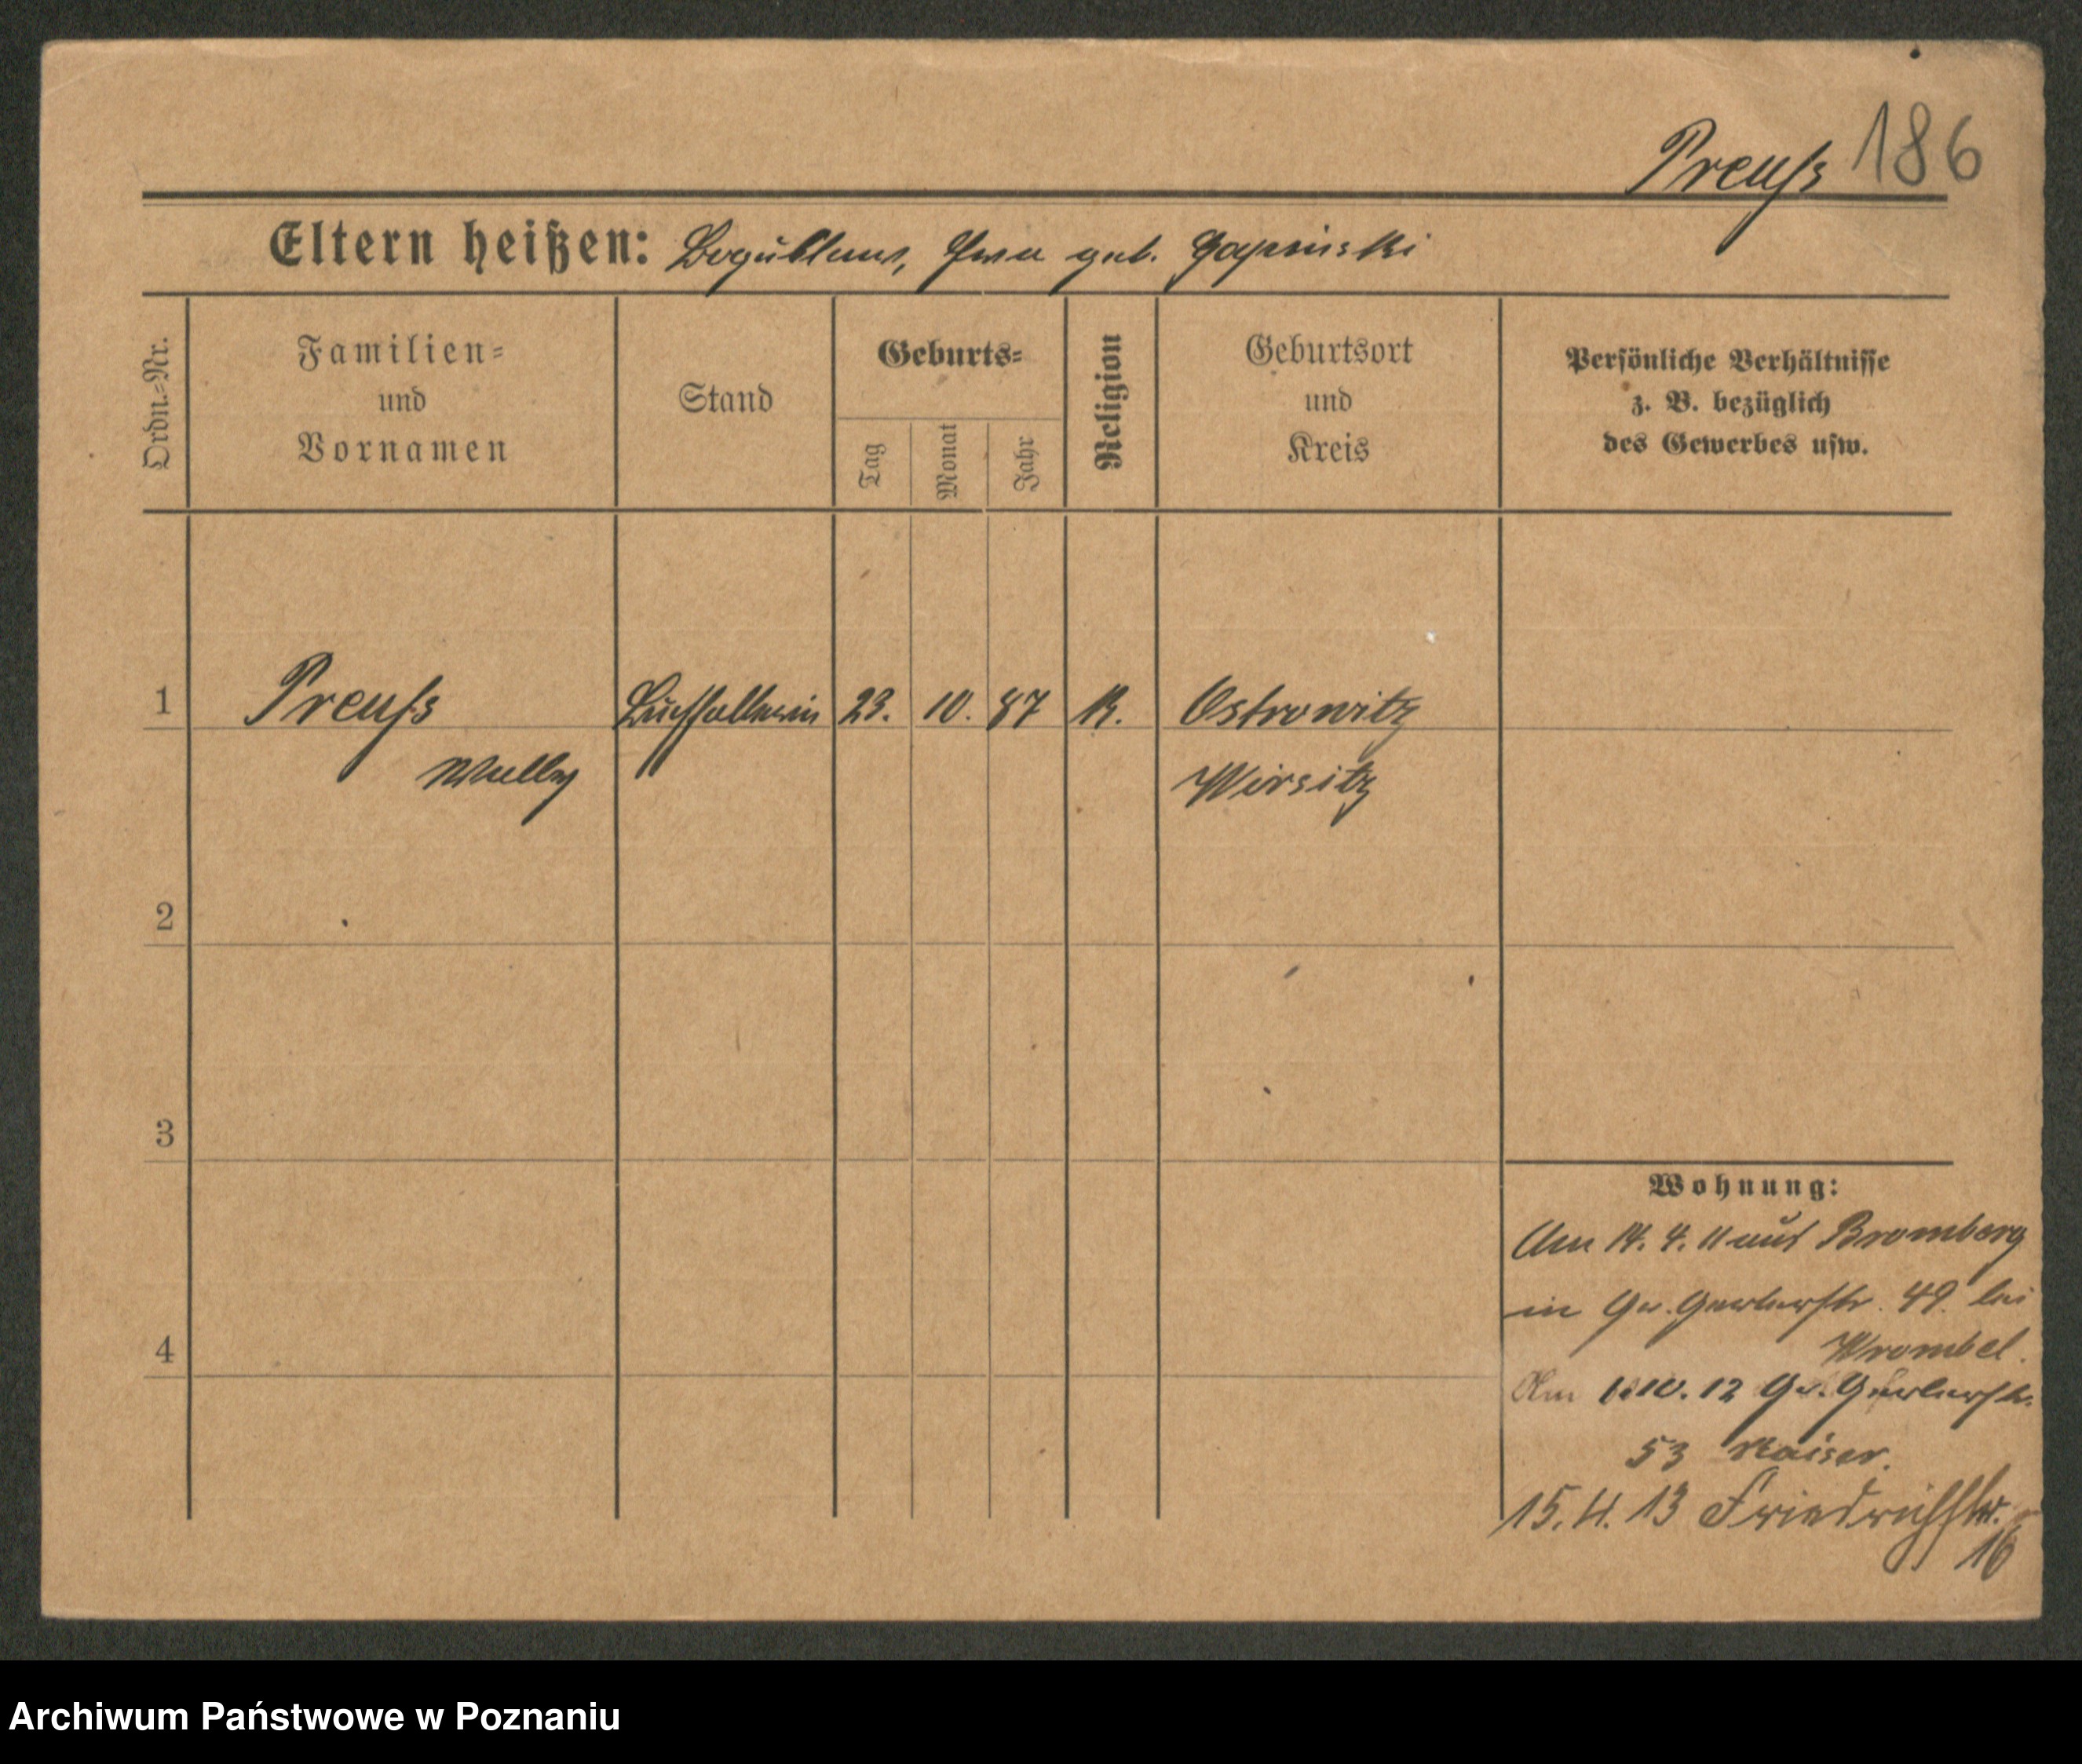 Preuſs 186
Eltern heißen: Boguslaus, geb.
Ordn.-Nr.
Familien-
und
Vornamen
Stand
Geburts-
Tag
Monat
Jahr
Religion
Geburtsort
und
Kreis
Persönliche Verhältnisse
z. B. bezüglich
des Gewerbes usw.
1 Preuſs Buchhalterin 23. 10. 87 K. Ostrowitz
Wally Wirsitz
2
3
Wohnung:
Am 14. 4. 11 aus Bromberg
in Gr. Gerberstr. 49. bei
4
Wrombel.
Am 10. 12 Gr. Gerberstr.
53 Kaiser.
15. 4. 13 Friedrichstr.
16
Archiwum Państwowe w Poznaniu